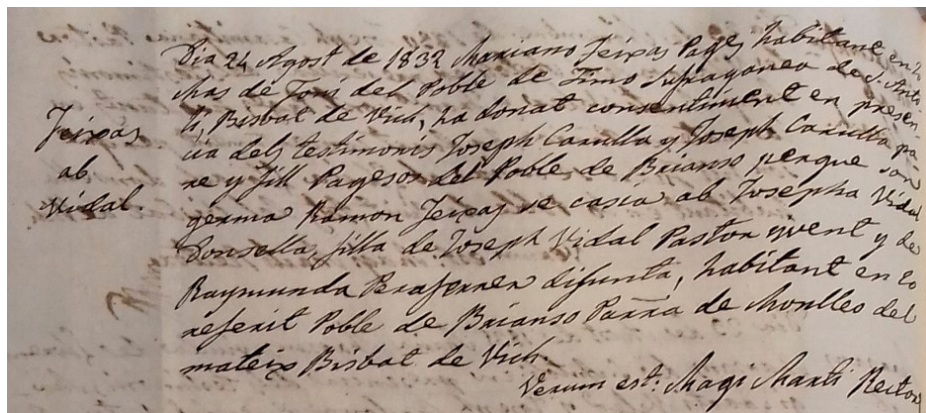 Teixas
ab
Vidal.
Dia 24 Agost de 1832 Mariano Teixas Pages habitant en lo
Mas de Torí del Poble de Timo Sufraganea de S. Anto
lí, Bisbat de Vich, ha donat consentiment en presen
cia dels testimonis Joseph Carulla y Joseph Carulla pa
re y fill Pagesos del Poble de Brianso perque son
germa Ramon Teixas se casia ab Josepha Vidal
Donsella, filla de Joseph Vidal Pastor vivent y de
Raymunda Peraferrer difunta, habitant en lo
referit Poble de Brianso Parra de Monlleo del
mateix Bisbat de Vich.
Verum est. Magi Marti Rector